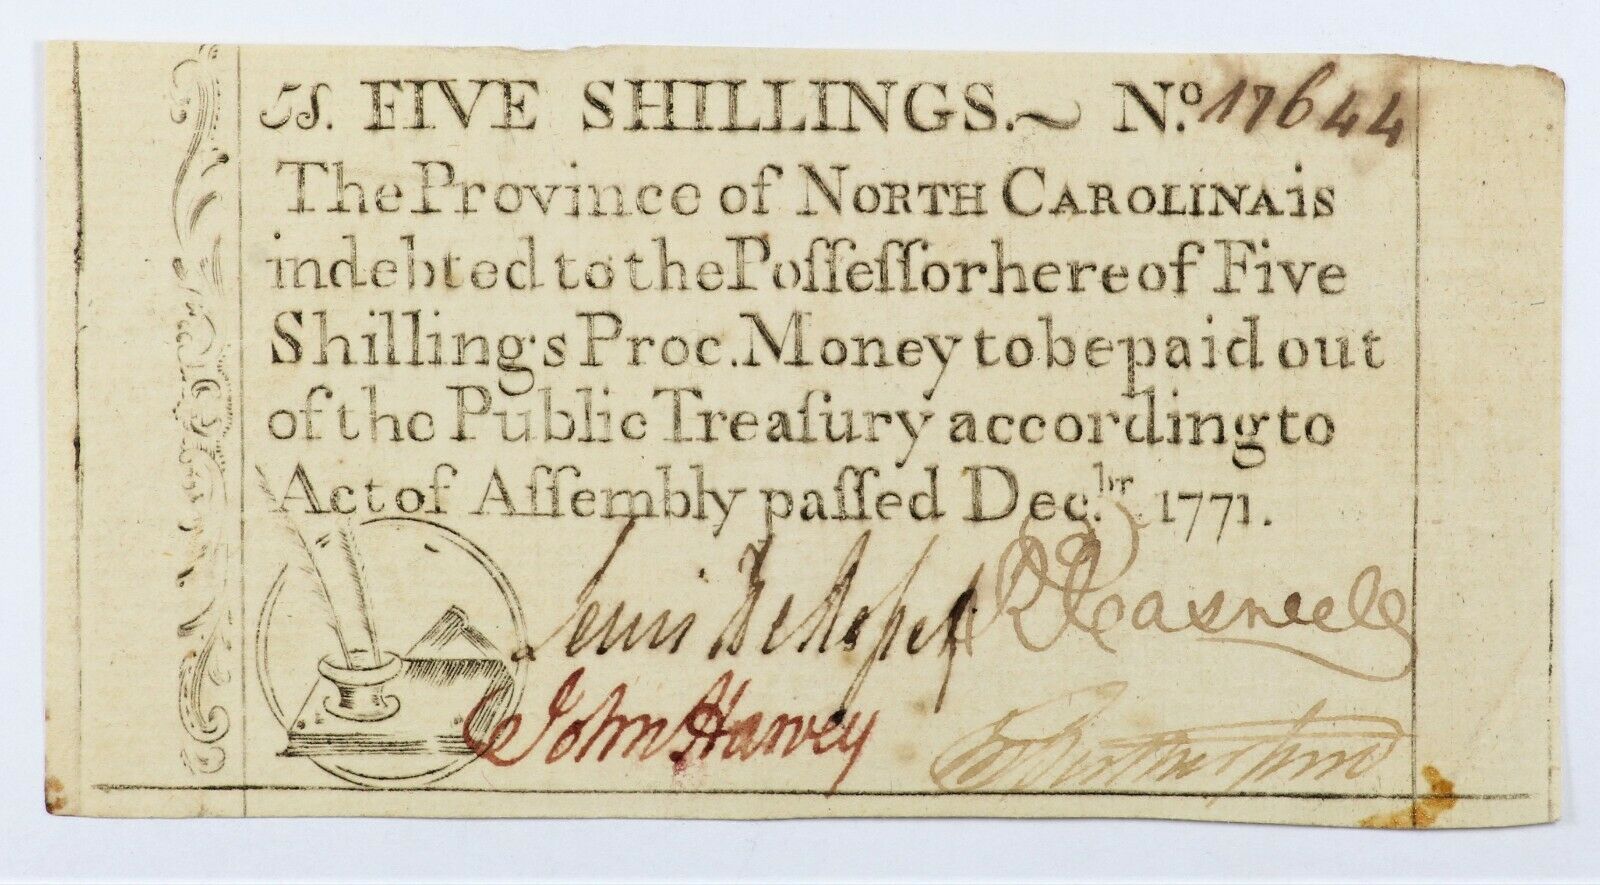 5S. FIVE SHILLINGS.~ No. 17644
The Province of NORTH CAROLINA is
indebted to the Poſſeſſor hereof Five
Shillings Proc. Money to be paid out
of the Public Treaſury according to
Act of Aſſembly paſſed Dec.br 1771.
Lewis De Rosset R Caswell
John Harvey